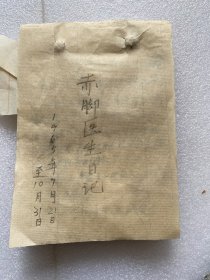 赤脚医生日记
1969年9月21日
至10月31日